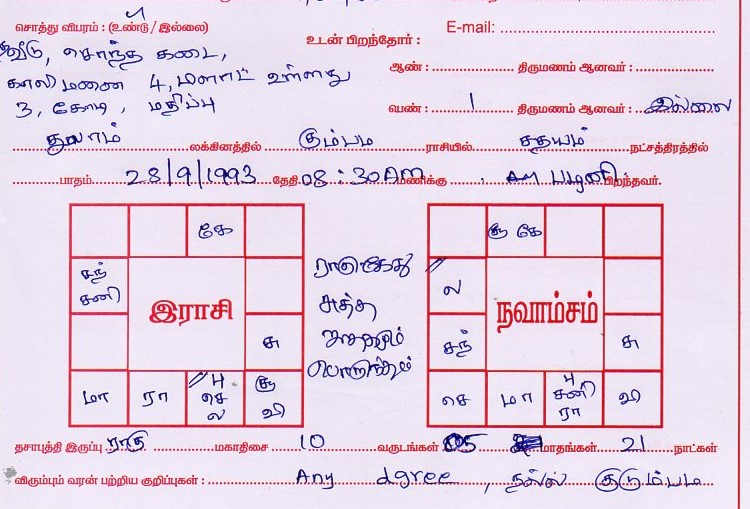 சொத்து விபரம் : (உண்டு / இல்லை)
E-mail:
வீடு, சொந்த கடை,
உடன் பிறந்தோர் :
காலிமனை 4, பிளாட் உள்ளது
ஆண் : திருமணம் ஆனவர் :
3, கோடி, மதிப்பு
பெண் : 1 திருமணம் ஆனவர் : இல்லை
துலாம் லக்கினத்தில் கும்பம் ராசியில் சதயம் நட்சத்திரத்தில்
பாதம் 28/9/1993 தேதி 08:30 AM மணிக்கு பழனி பிறந்தவர்.
கே
சந்
சனி
இராசி
சு
மா
ரா
பு
செ
ல
சூ
வி
ராகு கேது
சுத்த
ஜாதகமும்
பொருந்தும்
சூ கே
ல
நவாம்சம்
சந்
சு
செ
மா
பு
சனி
ரா
வி
தசாபுத்தி இருப்பு ராகு மகாதிசை 10 வருடங்கள் 05 மாதங்கள் 21 நாட்கள்
விரும்பும் வரன் பற்றிய குறிப்புகள் : Any dgree, நல்ல குடும்பம்